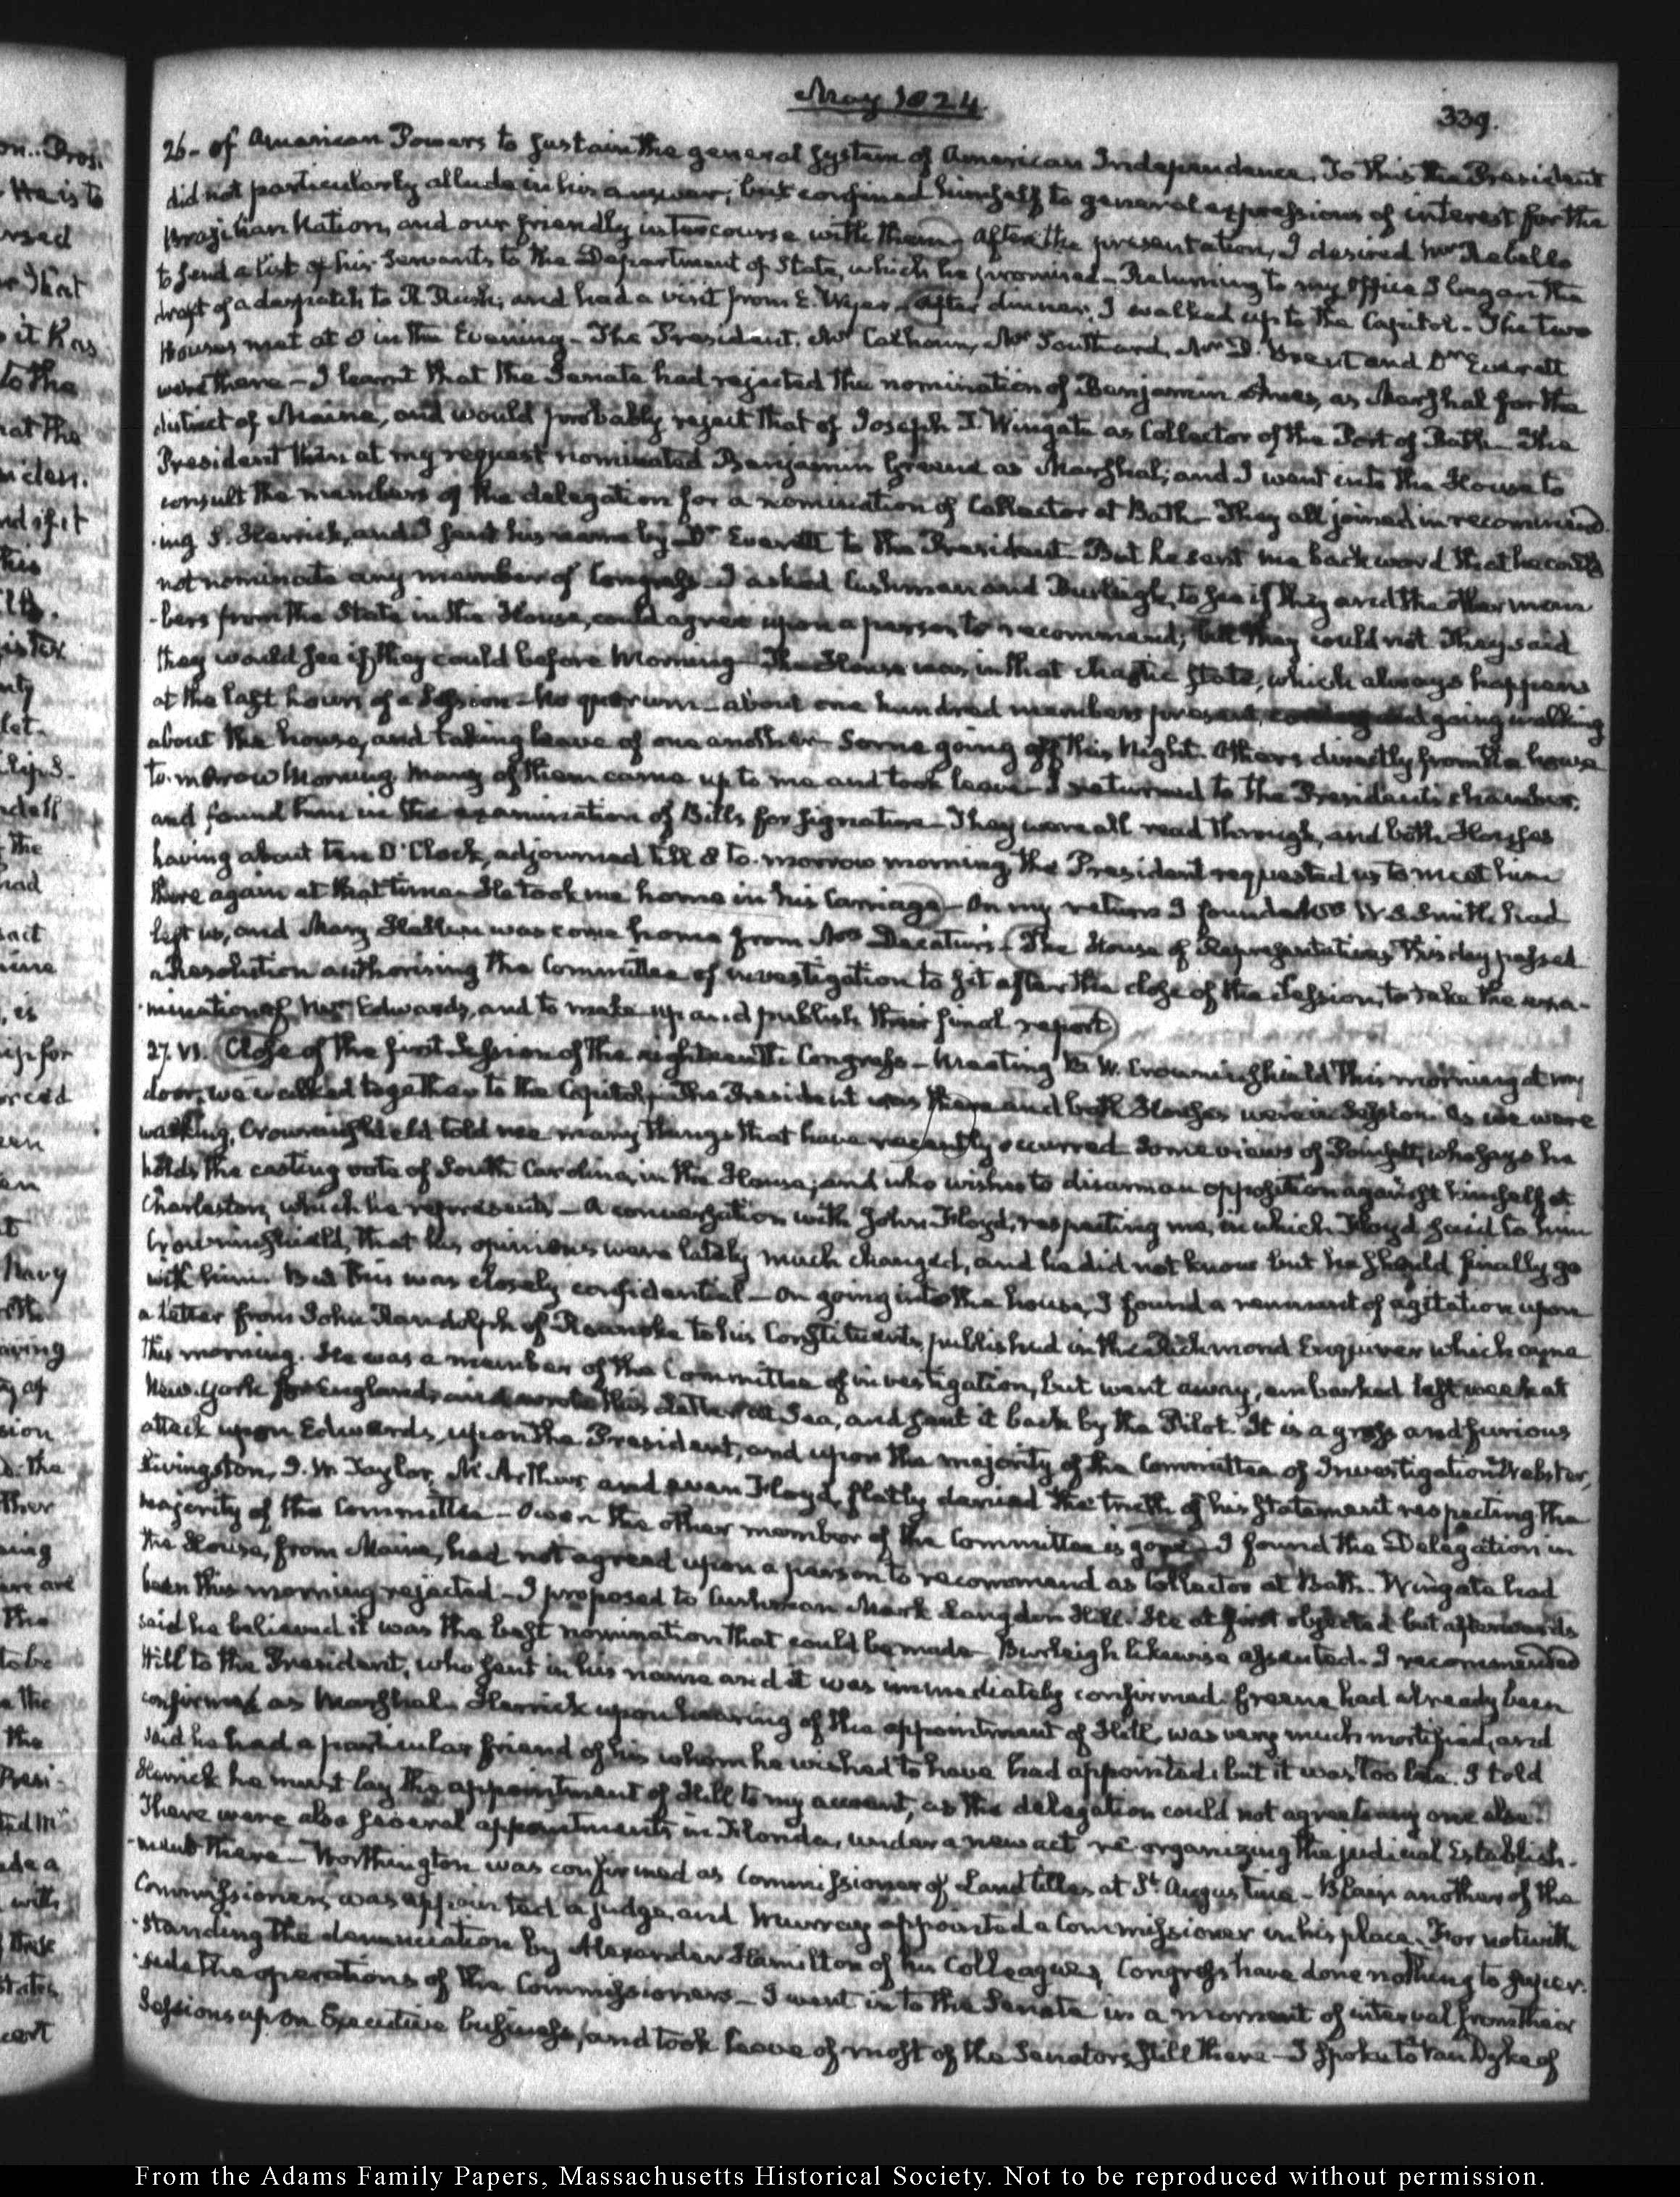 on.. Pros.
He is to
rsed
that
it has
to the
at the
den.
nd if it
this
is
nty
let
the
had
act
is
for
Navy
of
sion
the
ther
ing
are
the
to be
the
the
Presi-
ted Mr
de a
with
these
States
cert
May 1824.
339.
26- of American Powers to sustain the general system of American Independence. To this the President
did not particularly allude in his answer; but confined himself to general expressions of interest for the
Brazilian Nation, and our friendly intercourse with them, After the presentation, I desired Mr Rebello
to send a list of his Servants to the Department of State, which he promised- Returning to my Office I began the
draft of a despatch to R. Rush, and had a visit from E. Wyer- After dinner, I walked up to the Capitol. The two
Houses met at 8 in the Evening- The President, Mr Calhoun, Mr Southard, Mr D. Brent and Dr Everett
were there- I learnt that the Senate had rejected the nomination of Benjamin Ames, as Marshal for the
district of Maine, and would probably reject that of Joseph F. Wingate as Collector of the Port of Bath- The
President then at my request nominated Benjamin Greene as Marshal; and I went into the House to
consult the members of the delegation for a nomination of Collector at Bath- They all joined in recommend-
ing E. Herrick, and I sent his name by Dr Everett to the President- But he sent me back word that he could
not nominate any member of Congress- I asked Cushman and Burleigh, to see if they and the other mem
-bers from the State in the House, could agree upon a person to recommend; but they could not. They said
they would see if they could before Morning- The House was in that chaotic state, which always happens
at the last hours of a Session- No quorum- about one hundred members present, going walking
about the house, and taking leave of one another- Some going off this Night. Others directly from the house
to-morrow Morning. Many of them came up to me and took leave- I returned to the President's chamber,
and found him in the examination of Bills for signature- They were all read through, and both Houses
having about ten O'Clock, adjourned till 8 to-morrow morning, the President requested us to meet him
there again at that time- He took me home in his Carriage- On my return I found W. S. Smith had
left us, and Mary Hellen was come home from Mrs Decatur's- The House of Representatives this day passed
a Resolution authorising the Committee of investigation to sit after the close of the Session, to take the exa-
-mination of Mr Edwards, and to make up and publish their final report
27. VI. Close of the first Session of the eighteenth Congress- Meeting B. W. Crowninshield this morning at my
door, we walked together to the Capitol- The President was there and both Houses were in Session. As we were
walking, Crowninshield told me many things that have recently occurred. Some views of Poinsett, who says he
holds the casting vote of South Carolina, in the House; and who wishes to disarm an opposition against himself at
Charleston, which he represents- A conversation with John Floyd, respecting me, in which Floyd said to him
Crowninshield, that his opinions were lately much changed, and he did not know but he should finally go
with him. But this was closely confidential- On going into the house, I found a remnant of agitation upon
a letter from John Randolph of Roanoke to his Constituents, published in the Richmond Enquirer which came
this morning. He was a member of the Committee of investigation, but went away, embarked last week at
New-York for England, and wrote this letter at Sea, and sent it back by the Pilot. It is a gross and furious
attack upon Edwards, upon the President, and upon the majority of the Committee of Investigation. Webster,
Livingston, J. W. Taylor, McArthur, and even Floyd, flatly denied the truth of his statement respecting the
majority of the Committee- Owen the other member of the Committee is gone- I found the Delegation in
the House, from Maine, had not agreed upon a person to recommend as Collector at Bath. Wingate had
been this morning rejected- I proposed to Cushman Mark Langdon Hill. He at first objected but afterwards
said he believed it was the best nomination that could be made- Burleigh likewise assented. I recommended
Hill to the President, who sent in his name and it was immediately confirmed. Greene had already been
confirmed as Marshal. Herrick upon hearing of the appointment of Hill, was very much mortified, and
said he had a particular friend of his whom he wished to have had appointed; but it was too late. I told
Herrick he must lay the appointment of Hill to my account, as the delegation could not agree to any one else.
There were also several appointments in Florida, under a new act re-organizing the judicial Establish-
-ment there- Worthington was confirmed as Commissioner of Land titles at St Augustine- Blair another of the
Commissioners, was appointed a judge, and Murray appointed a Commissioner in his place. For notwith
-standing the denunciation by Alexander Hamilton of his Colleagues, Congress have done nothing to super-
-sede the operations of the Commissioners- I went in to the Senate in a moment of interval from their
Sessions upon Executive business, and took leave of most of the Senators still there- I spoke to Van Dyke of
From the Adams Family Papers, Massachusetts Historical Society. Not to be reproduced without permission.